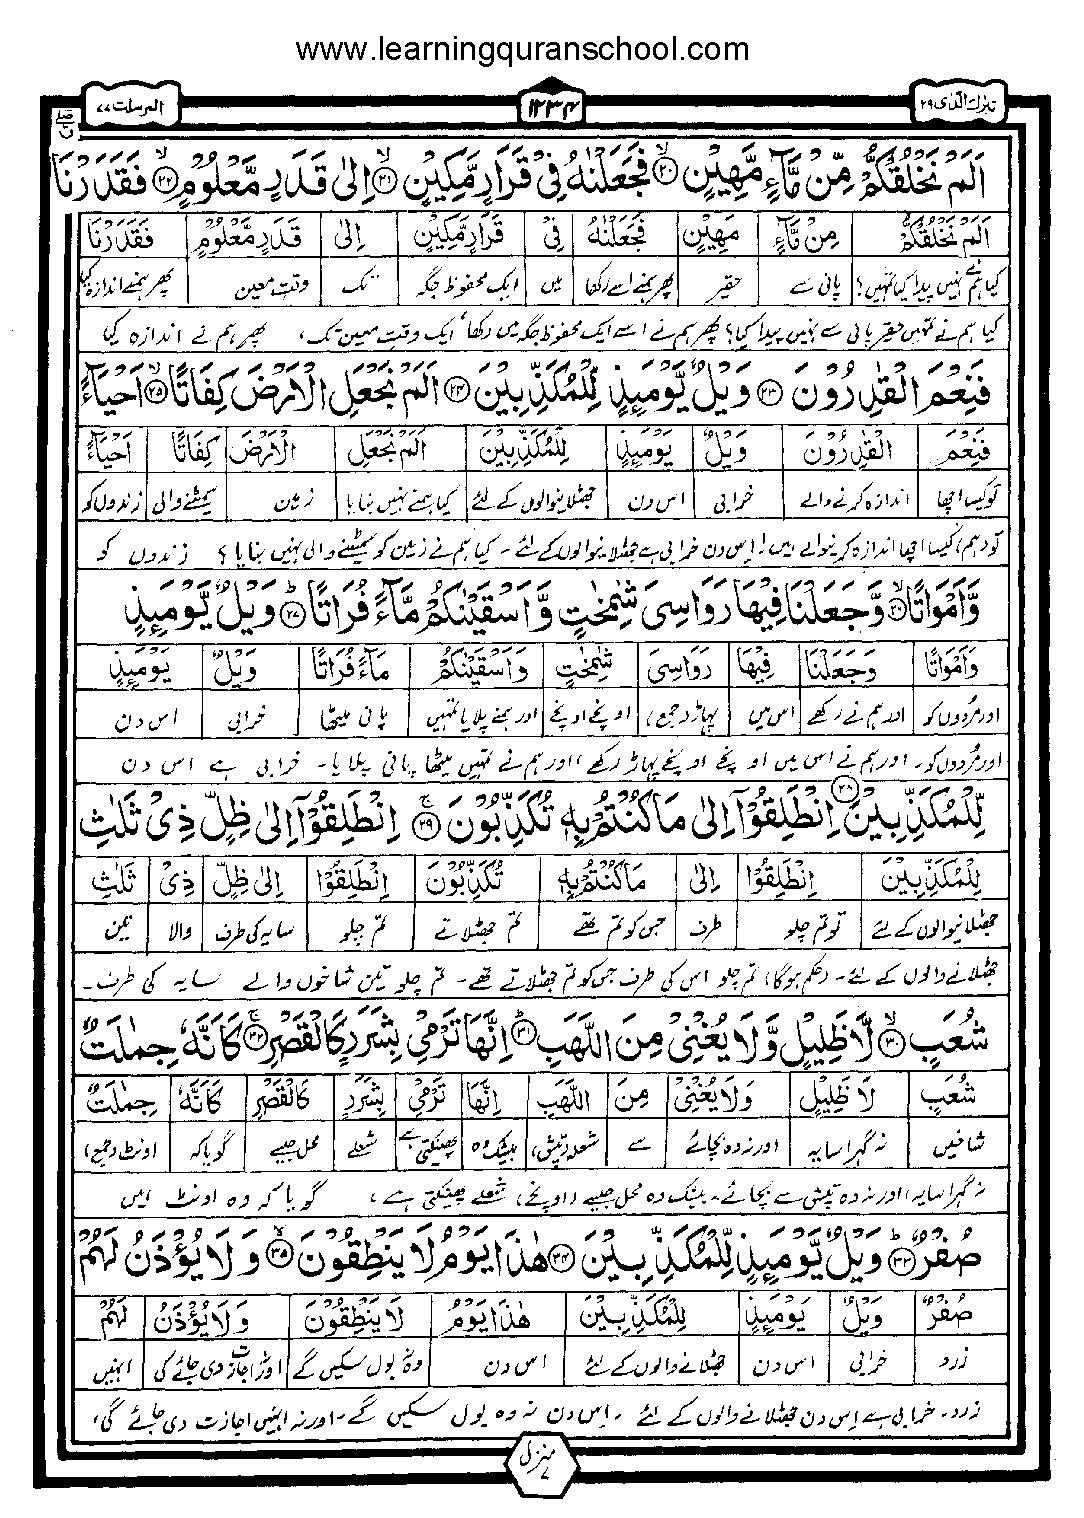 www.learningquranschool.com
تبٰرك الذی ۲۹
۱۲۳۴
المرسلت ۷۷
اَلَمْ نَخْلُقْكُّمْ مِّنْ مَّآءٍ مَّهِيْنٍ ۲۰ فَجَعَلْنٰهُ فِيْ قَرَارٍ مَّكِيْنٍ ۲۱ اِلٰى قَدَرٍ مَّعْلُوْمٍ ۲۲ فَقَدَرْنَا
اَلَمْ نَخْلُقْكُّمْ مِنْ مَّآءٍ مَهِيْنٍ فَجَعَلْنٰهُ فِيْ قَرَارٍ مَّكِيْنٍ اِلٰى قَدَرٍ مَّعْلُوْمٍ فَقَدَرْنَا
کیا ہم نے نہیں پیدا کیا تمہیں؟ پانی سے حقیر پھر ہمنے اسے رکھا میں ایک محفوظ جگہ تک وقت معین پھر ہمنے اندازہ کیا
کیا ہم نے تمہیں حقیر پانی سے نہیں پیدا کیا؟ پھر ہم نے اسے ایک محفوظ جگہ میں رکھا، ایک وقت معین تک، پھر ہم نے اندازہ کیا
فَنِعْمَ الْقٰدِرُوْنَ ۲۳ وَيْلٌ يَّوْمَئِذٍ لِّلْمُكَذِّبِيْنَ ۲۴ اَلَمْ نَجْعَلِ الْاَرْضَ كِفَاتًا ۲۵ اَحْيَآءً
فَنِعْمَ الْقٰدِرُوْنَ وَيْلٌ يَوْمَئِذٍ لِلْمُكَذِّبِيْنَ اَلَمْ نَجْعَلِ الْاَرْضَ كِفَاتًا اَحْيَآءً
تو کیسا اچھا اندازہ کرنے والے خرابی اس دن جھٹلانیوالوں کے لئے کیا ہمنے نہیں بنایا زمین سمیٹنے والی زندوں کو
تو (ہم) کیسا اچھا اندازہ کرنیوالے ہیں! اس دن خرابی ہے جھٹلانیوالوں کے لئے۔ کیا ہم نے زمین کو سمیٹنے والی نہیں بنایا؟ زندوں کو
وَّاَمْوَاتًا ۲۶ وَّجَعَلْنَا فِيْهَا رَوَاسِيَ شٰمِخٰتٍ وَّاَسْقَيْنٰكُمْ مَّآءً فُرَاتًا ۲۷ وَيْلٌ يَّوْمَئِذٍ
وَاَمْوَاتًا وَجَعَلْنَا فِيْهَا رَوَاسِيَ شٰمِخٰتٍ وَاَسْقَيْنٰكُمْ مَآءً فُرَاتًا وَيْلٌ يَوْمَئِذٍ
اور مُردوں کو اور ہم نے رکھے اس میں پہاڑ (جمع) اونچے اونچے اور ہمنے پلایا تمہیں پانی میٹھا خرابی اس دن
اور مُردوں کو۔ اور ہم نے اس میں اونچے اونچے پہاڑ رکھے اور ہم نے تمہیں میٹھا پانی پلایا۔ خرابی ہے اس دن
لِّلْمُكَذِّبِيْنَ ۲۸ اِنْطَلِقُوْٓا اِلٰى مَا كُنْتُمْ بِهٖ تُكَذِّبُوْنَ ۲۹ اِنْطَلِقُوْٓا اِلٰى ظِلٍّ ذِيْ ثَلٰثِ
لِلْمُكَذِّبِيْنَ اِنْطَلِقُوْٓا اِلٰى مَا كُنْتُمْ بِهٖ تُكَذِّبُوْنَ اِنْطَلِقُوْٓا اِلٰى ظِلٍّ ذِيْ ثَلٰثِ
جھٹلانیوالوں کے لئے تو تم چلو طرف جس کو تم تھے تم جھٹلاتے تم چلو سایہ کی طرف والا تین
جھٹلانے والوں کے لئے۔ (حکم ہوگا) تم چلو اس کی طرف جس کو تم جھٹلاتے تھے۔ تم چلو تین شاخوں والے سایہ کی طرف۔
شُعَبٍ ۳۰ لَّا ظَلِيْلٍ وَّلَا يُغْنِيْ مِنَ اللَّهَبِ ۳۱ اِنَّهَا تَرْمِيْ بِشَرَرٍ كَالْقَصْرِ ۳۲ كَاَنَّهٗ جِمٰلَتٌ
شُعَبٍ لَا ظَلِيْلٍ وَلَا يُغْنِيْ مِنَ اللَّهَبِ اِنَّهَا تَرْمِيْ بِشَرَرٍ كَالْقَصْرِ كَاَنَّهٗ جِمٰلَتٌ
شاخیں نہ گہرا سایہ اور نہ وہ بچائے سے شعلہ (تپش) بیشک وہ پھینکتی ہے شعلے محل جیسے گویا کہ اونٹ (جمع)
نہ گہرا سایہ، اور نہ وہ تپش سے بچائے۔ بیشک وہ محل جیسے (اونچے) شعلے پھینکتی ہے، گویا کہ وہ اونٹ ہیں
صُفْرٌ ۳۳ وَيْلٌ يَّوْمَئِذٍ لِّلْمُكَذِّبِيْنَ ۳۴ هٰذَا يَوْمُ لَا يَنْطِقُوْنَ ۳۵ وَلَا يُؤْذَنُ لَهُمْ
صُفْرٌ وَيْلٌ يَوْمَئِذٍ لِلْمُكَذِّبِيْنَ هٰذَا يَوْمُ لَا يَنْطِقُوْنَ وَلَا يُؤْذَنُ لَهُمْ
زرد خرابی اس دن جھٹلانے والوں کے لئے اس دن وہ نہ بول سکیں گے اور نہ اجازت دی جائے گی انہیں
زرد۔ خرابی ہے اس دن جھٹلانے والوں کے لئے۔ اس دن نہ وہ بول سکیں گے۔ اور نہ انہیں اجازت دی جائے گی،
منزل ۷